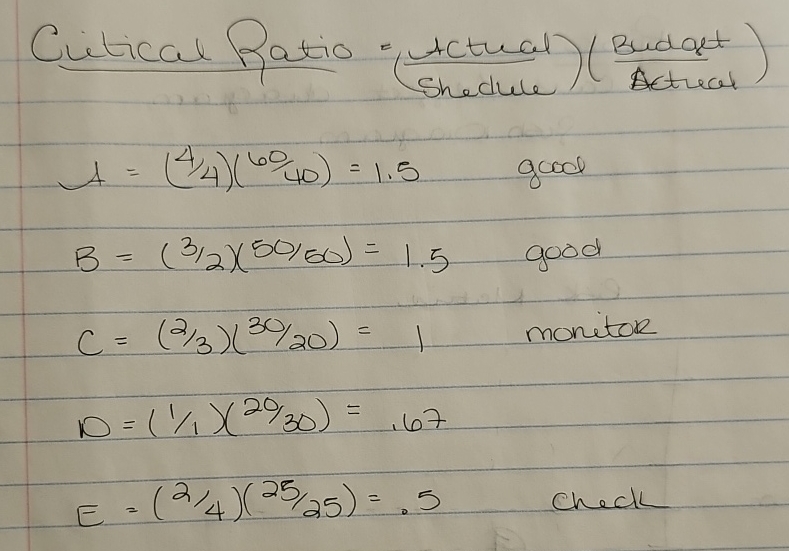 Critical Ratio = (Actual/Shedule)(Budget/Actual)
A = (4/4)(60/40) = 1.5 good
B = (3/2)(50/50) = 1.5 good
C = (2/3)(30/20) = 1 monitor
D = (1/1)(20/30) = .67
E = (2/4)(25/25) = .5 Check